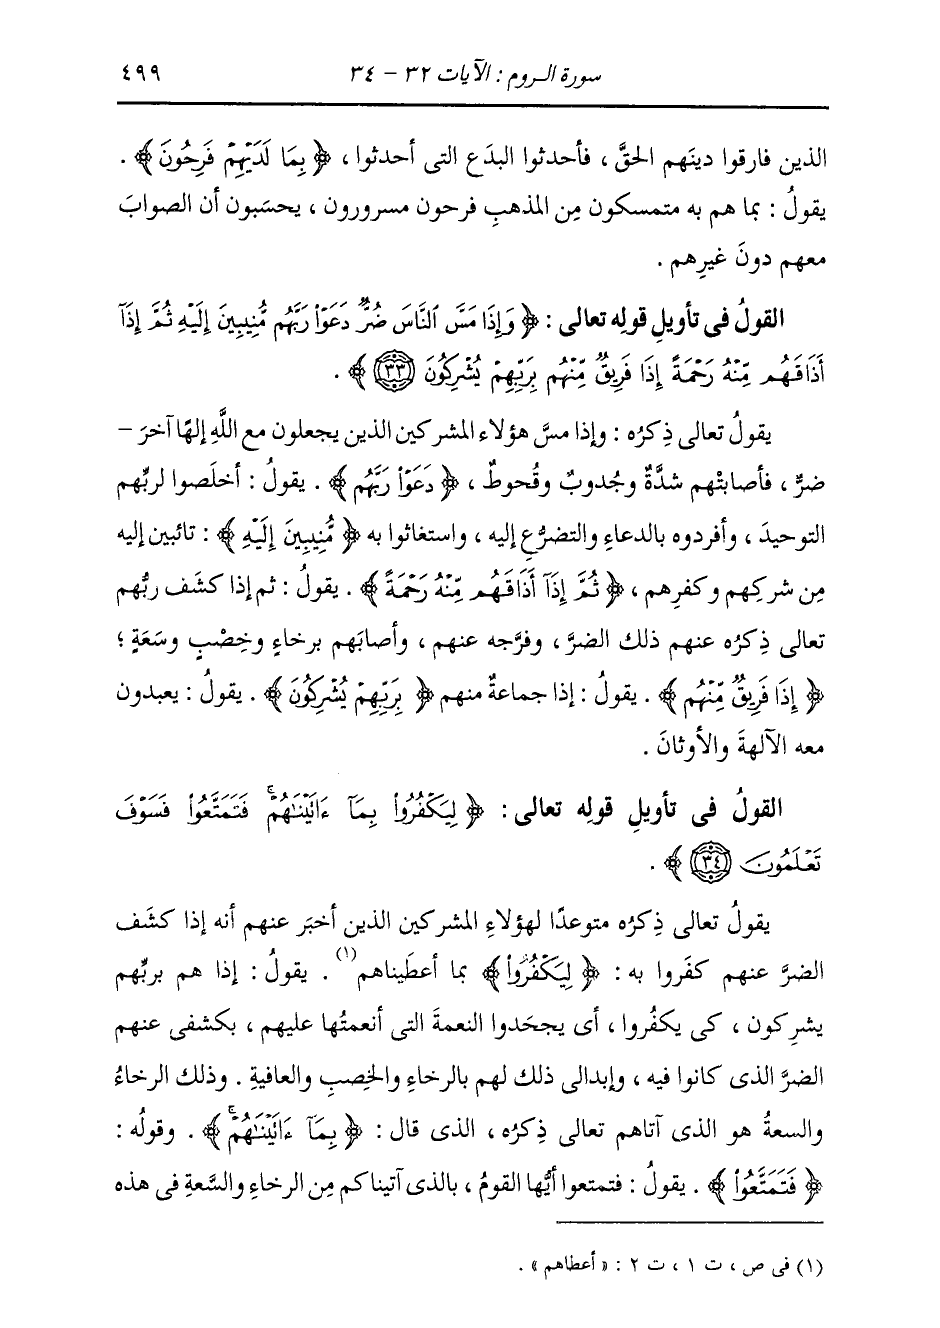 سورة الروم : الآيات ٣٢ - ٣٤ ٤٩٩
الذين فارقوا دينَهم الحقَّ ، فأحدثوا البدَع التى أحدثوا ، ﴿ بِمَا لَدَيْهِمْ فَرِحُونَ ﴾ .
يقولُ : بما هم به متمسكون مِن المذهبِ فرحون مسرورون ، يحسَبون أن الصوابَ
معهم دونَ غيرِهم .
القولُ فى تأويلِ قولِه تعالى : ﴿ وَإِذَا مَسَّ ٱلنَّاسَ ضُرٌّ دَعَوْا۟ رَبَّهُم مُّنِيبِينَ إِلَيْهِ ثُمَّ إِذَآ
أَذَاقَهُم مِّنْهُ رَحْمَةً إِذَا فَرِيقٌ مِّنْهُم بِرَبِّهِمْ يُشْرِكُونَ ٣٣ ﴾ .
يقولُ تعالى ذِكرُه : وإذا مسَّ هؤلاء المشركين الذين يجعلون مع اللَّهِ إلهًا آخرَ -
ضرٌّ ، فأصابتْهم شدَّةٌ وجُدوبٌ وقُحوطٌ ، ﴿ دَعَوْا۟ رَبَّهُم ﴾ . يقولُ : أخلَصوا لربِّهم
التوحيدَ ، وأفردوه بالدعاءِ والتضرُّعِ إليه ، واستغاثوا به ﴿ مُّنِيبِينَ إِلَيْهِ ﴾ : تائبين إليه
مِن شركِهم وكفرِهم ، ﴿ ثُمَّ إِذَآ أَذَاقَهُم مِّنْهُ رَحْمَةً ﴾ . يقولُ : ثم إذا كشَف ربُّهم
تعالى ذِكرُه عنهم ذلك الضرَّ ، وفرَّجه عنهم ، وأصابَهم برخاءٍ وخِصْبٍ وسَعَةٍ ؛
﴿ إِذَا فَرِيقٌ مِّنْهُم ﴾ . يقولُ : إذا جماعةٌ منهم ﴿ بِرَبِّهِمْ يُشْرِكُونَ ﴾ . يقولُ : يعبدون
معه الآلهةَ والأوثانَ .
القولُ فى تأويلِ قولِه تعالى : ﴿ لِيَكْفُرُوا۟ بِمَآ ءَاتَيْنَٰهُمْ ۚ فَتَمَتَّعُوا۟ فَسَوْفَ
تَعْلَمُونَ ٣٤ ﴾ .
يقولُ تعالى ذِكرُه متوعدًا لهؤلاءِ المشركين الذين أخبَر عنهم أنه إذا كشَف
الضرَّ عنهم كفَروا به : ﴿ لِيَكْفُرُوا۟ ﴾ بما أعطَيناهم(١) . يقولُ : إذا هم بربِّهم
يشرِكون ، كى يكفُروا ، أى يجحَدوا النعمةَ التى أنعمتُها عليهم ، بكشفى عنهم
الضرَّ الذى كانوا فيه ، وإبدالى ذلك لهم بالرخاءِ والخِصبِ والعافيةِ . وذلك الرخاءُ
والسعةُ هو الذى آتاهم تعالى ذِكرُه ، الذى قال : ﴿ بِمَآ ءَاتَيْنَٰهُمْ ۚ ﴾ . وقولُه :
﴿ فَتَمَتَّعُوا۟ ﴾ . يقولُ : فتمتعوا أيُّها القومُ ، بالذى آتيناكم مِن الرخاءِ والسَّعةِ فى هذه
(١) فى ص ، ت ١ ، ت ٢ : « أعطاهم » .